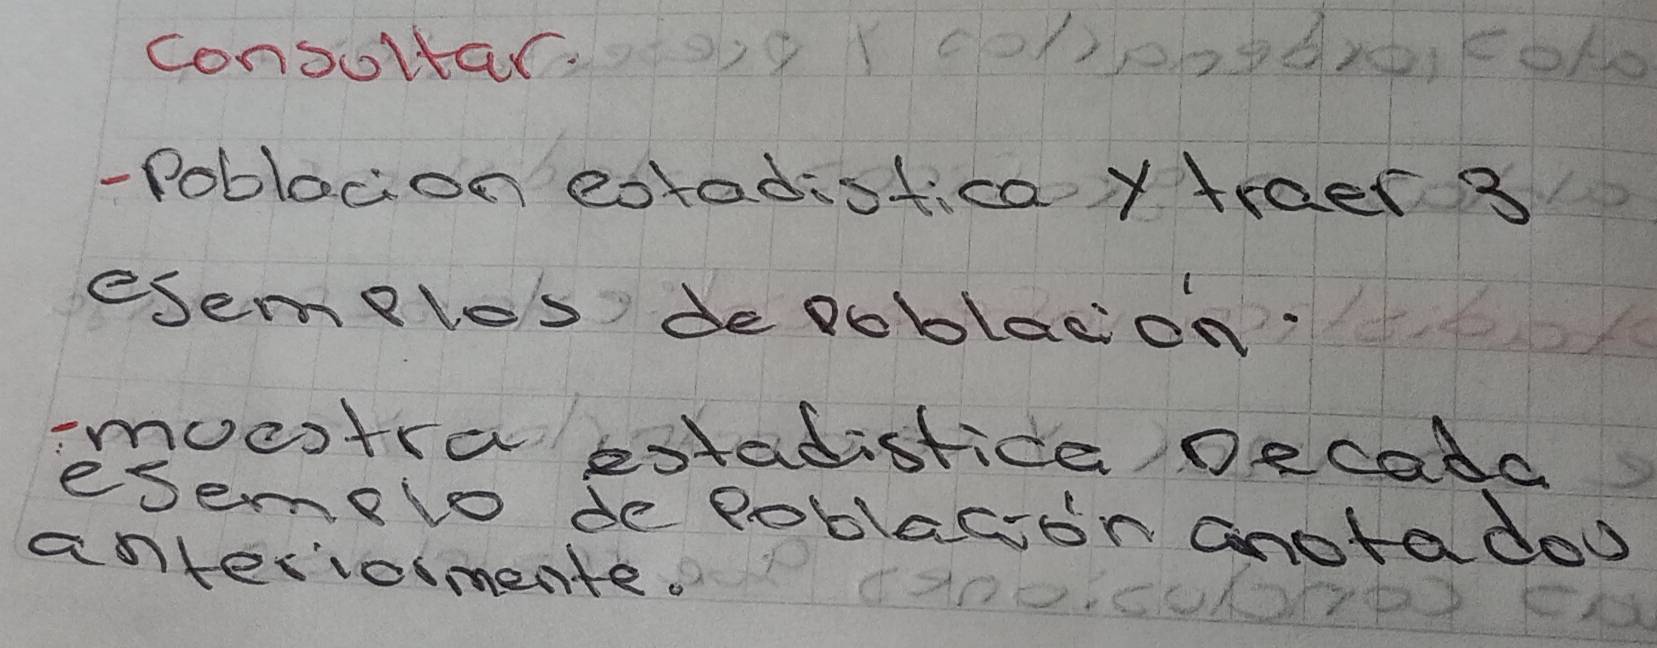 Consultar.
-Poblacion estadistica y traer 3
ejemplos de población.
-muestra estadistica De cada
ejemplo de Población anotados
anteriormente.